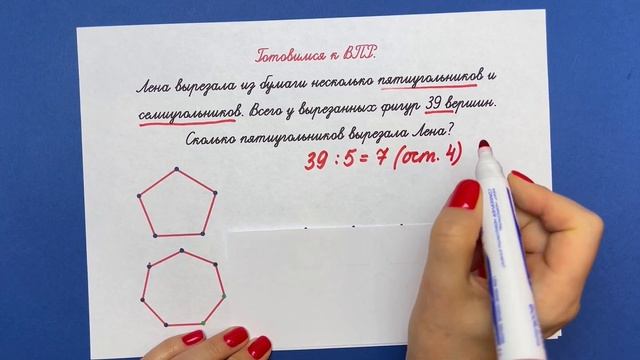 Готовимся к ВПР.
Лена вырезала из бумаги несколько пятиугольников и
семиугольников. Всего у вырезанных фигур 39 вершин.
Сколько пятиугольников вырезала Лена?
39 : 5 = 7 (ост. 4)